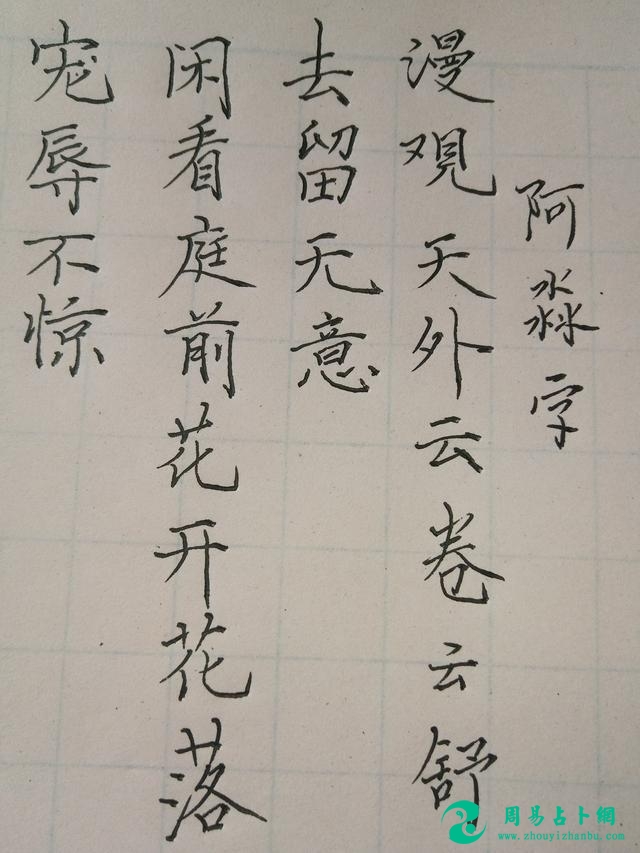 宠辱不惊
闲看庭前花开花落
去留无意
漫观天外云卷云舒
阿淼字
周易占卜網
www.zhouyizhanbu.com